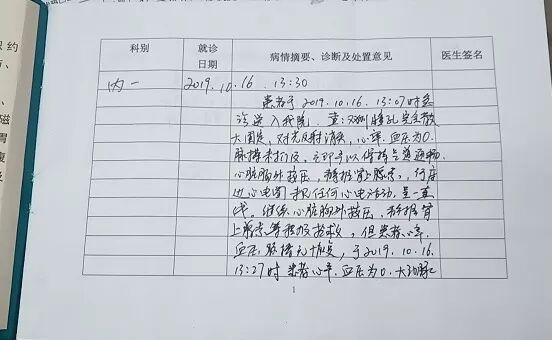 科别 就诊日期 病情摘要、诊断及处置意见 医生签名
内一 2019.10.16. 13:30
患者于2019.10.16. 13:07时
诊送入我院. 查:双侧瞳孔完全散
大固定, 对光反射消失, 心率. 血压为0.
脉搏未扪及. 立即予以保持气道通畅
心脏胸外按压, 静推肾上腺素, 行床
边心电图 未见任何心电活动, 呈一直
线. 继续心脏胸外按压, 静推肾
上腺素等积极抢救, 但患者心率.
血压. 脉搏无恢复, 于2019.10.16.
13:27时患者心率. 血压为0. 大动脉
1